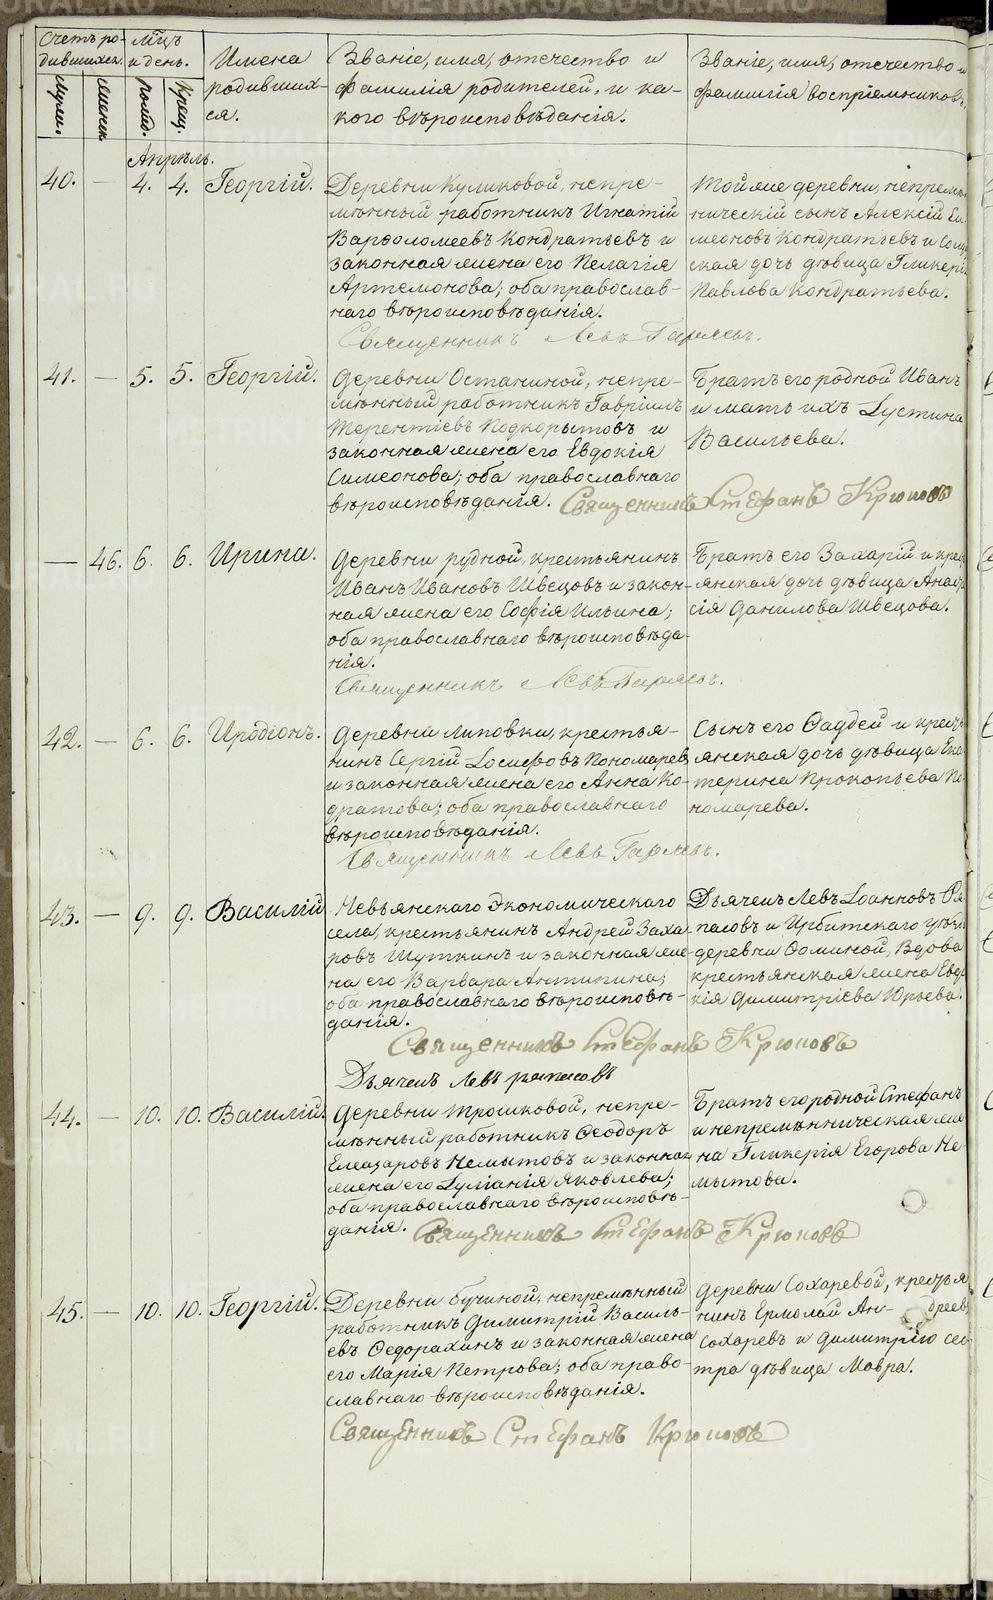 Счетъ ро-
дившихся.
Мцъ
и день.
Имена
родивших-
ся.
Званіе, имя, отечество и
фамилія родителей, и ка-
кого вѣроисповѣданія.
Званіе, имя, отечество и
фамилія воспріемниковъ.
Муж.
Женск
Рожд.
Крещ.
Апрѣль.
40. — 4. 4. Георгій.
Деревни Куликовой, непре-
мѣнный работникъ Игнатій
Варѳоломеевъ Кондратьевъ и
законная жена его Пелагія
Артемонова; оба православ-
наго вѣроисповѣданія.
Священникъ Левъ Гаряевъ.
Той же деревни, непремѣн
ническій сынъ Алексій Си
меоновъ Кондратьевъ и
ская дочь дѣвица Гликерія
Павлова Кондратьева.
41. — 5. 5. Георгій.
Деревни Останиной, непре-
мѣнный работникъ Гавріилъ
Терентіевъ Подкорытовъ и
законная жена его Евдокія
Симеонова; оба православнаго
вѣроисповѣданія. Священникъ Стефанъ Крюковъ
Братъ его родной Иванъ
и мать ихъ Іустина
Васильева.
— 46. 6. 6. Ирина.
Деревни рудной, крестьянинъ
Иванъ Ивановъ Швецовъ и закон-
ная жена его Софія Ильина;
оба православнаго вѣроисповѣда-
нія.
Священникъ Левъ Гаряевъ.
Братъ его Захарій и крес
янская дочь дѣвица Анаста
сія Данилова Швецова.
42. — 6. 6. Иродіонъ.
Деревни Липовки, крестья-
нинъ Сергій Іосифовъ Пономаревъ
и законная жена его Анна Ко-
дратова; оба православнаго
вѣроисповѣданія.
Священникъ Левъ Гаряевъ.
Сынъ его Ѳаддей и крестъ
янская дочь дѣвица Ека
терина Прокопьева По
номарева.
43. — 9. 9. Василій
Невьянскаго Экономическаго
села, крестьянинъ Андрей Заха-
ровъ Шуткинъ и законная же-
на его Варвара Антипина;
оба православнаго вѣроисповѣ-
данія.
Священникъ Стефанъ Крюковъ
Дьячекъ Левъ ряпасовъ
Дьячекъ Левъ Іоанновъ Ря
пасовъ и Ирбитскаго уѣзда
деревни Ѳоминой, Вдова
крестьянская жена Евдо
кія Димитріева Юрьева.
44. — 10. 10. Василій.
Деревни Трошковой, непре-
мѣнный работникъ Ѳеодоръ
Елеазаровъ Немытовъ и законная
жена его Іуліанія Яковлева;
оба православнаго вѣроисповѣ-
данія. Священникъ Стефанъ Крюковъ
Братъ его родной Стефанъ
и непремѣнническая же
на Гликерія Егорова Не-
мытова.
45. — 10. 10. Георгій.
Деревни бучиной, непремѣнный
работникъ Димитрій Василь-
евъ Ѳедорахинъ и законная жена
его Марія Петрова; оба право-
славнаго вѣроисповѣданія.
Священникъ Стефанъ Крюковъ
Деревни Сохаревой, крестья
нинъ Ермолай Ан- дреев
Сохаревъ и Димитрію сес
тра дѣвица Мавра.